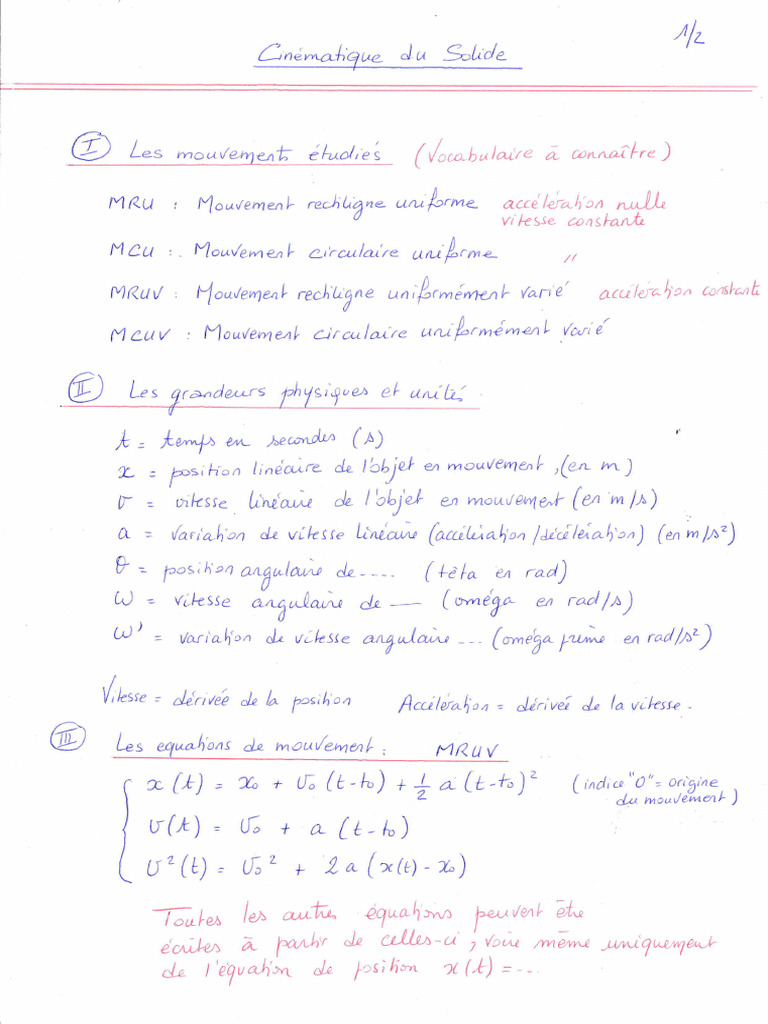 1/2
Cinématique du Solide
I Les mouvements étudiés (Vocabulaire à connaître)
MRU : Mouvement rectiligne uniforme accélération nulle
vitesse constante
MCU : Mouvement circulaire uniforme "
MRUV : Mouvement rectiligne uniformément varié accélération constante
MCUV : Mouvement circulaire uniformément varié
II Les grandeurs physiques et unités.
t = temps en secondes (s)
x = position linéaire de l'objet en mouvement, (en m)
v = vitesse linéaire de l'objet en mouvement (en m/s)
a = variation de vitesse linéaire (accélération/décélération) (en m/s²)
θ = position angulaire de .... (têta en rad)
ω = vitesse angulaire de — (oméga en rad/s)
ω' = variation de vitesse angulaire ... (oméga prime en rad/s²)
Vitesse = dérivée de la position Accélération = dérivée de la vitesse.
III Les equations de mouvement : MRUV
x(t) = x₀ + v₀ (t-t₀) + 1/2 a (t-t₀)² (indice "0" = origine
du mouvement)
v(t) = v₀ + a (t-t₀)
v²(t) = v₀² + 2a (x(t) - x₀)
Toutes les autres équations peuvent être
écrites à partir de celles-ci, voire même uniquement
de l'équation de position x(t) = ...